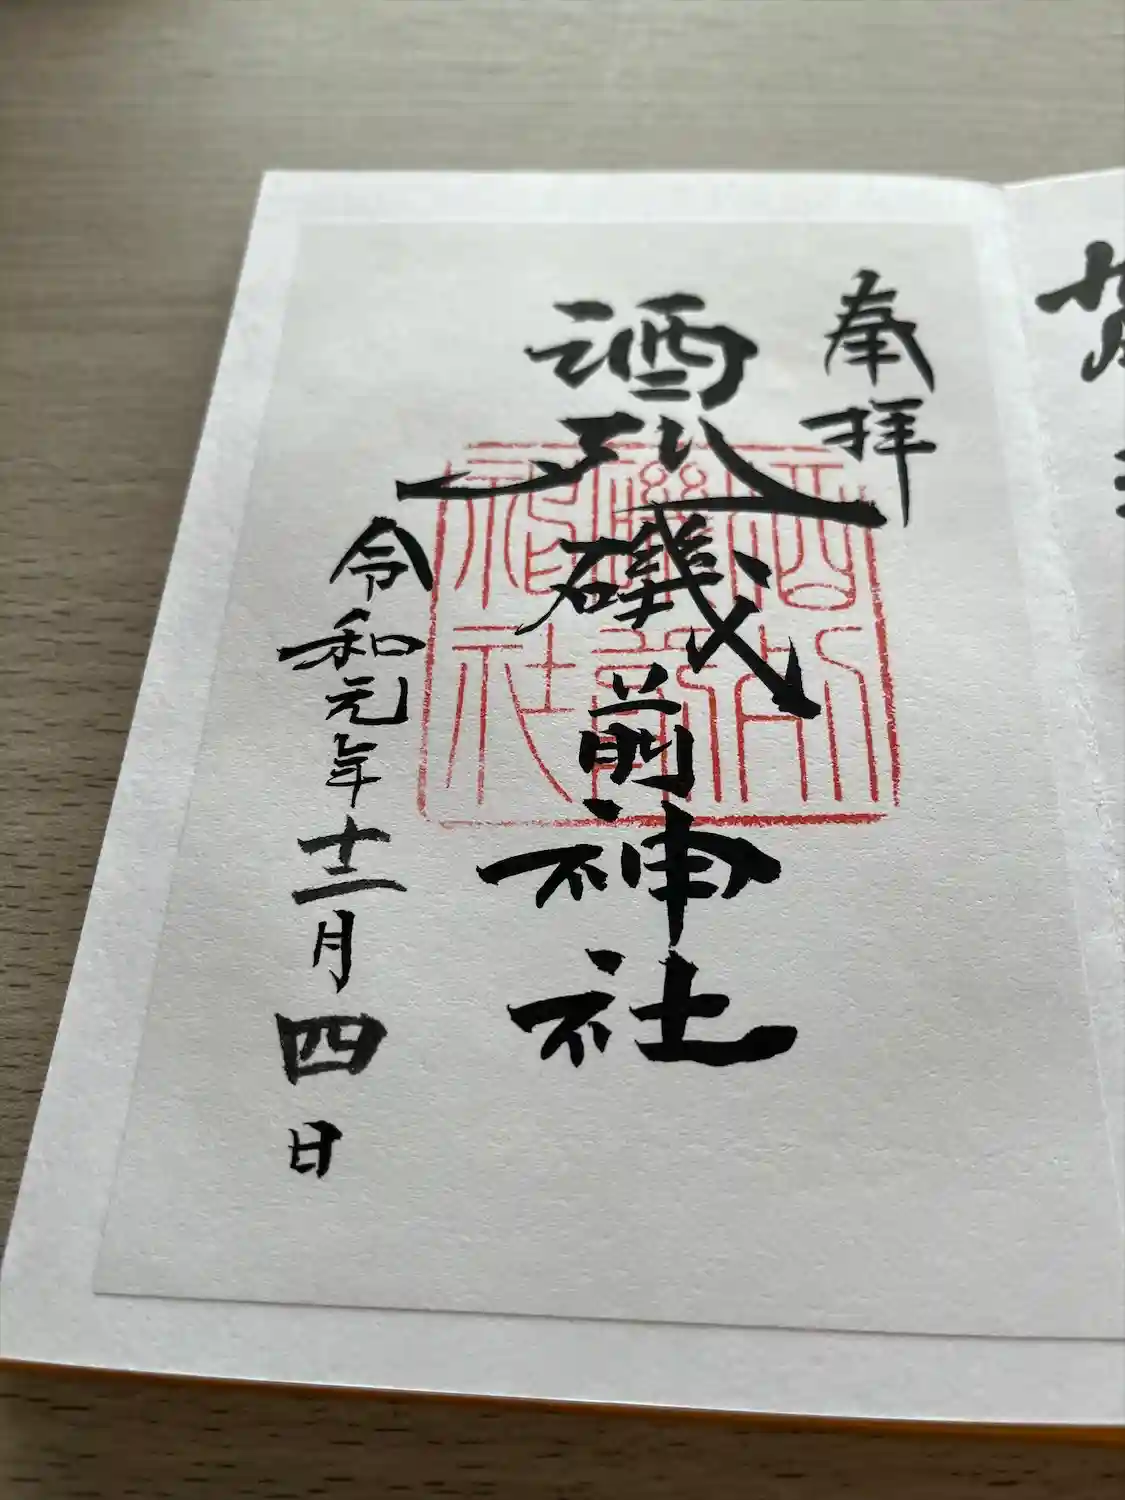 奉拝
酒列磯前神社
令和元年十二月四日
酒列
磯前
神社